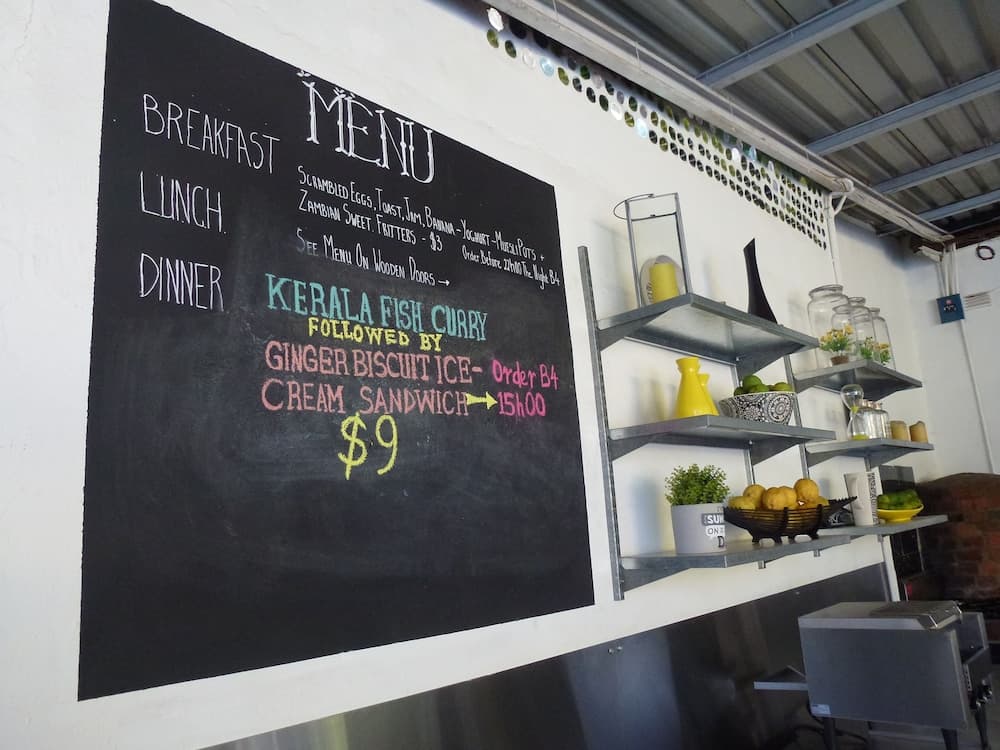 MENU
BREAKFAST
SCRAMBLED EGGS, TOAST, JAM, BANANA - YOGHURT - MUESLI POTS +
ZAMBIAN SWEET FRITTERS - $3
Order Before 22h00 The Night B4
LUNCH
SEE MENU ON WOODEN DOORS →
DINNER
KERALA FISH CURRY
FOLLOWED BY
GINGER BISCUIT ICE- Order B4
CREAM SANDWICH → 15h00
$9